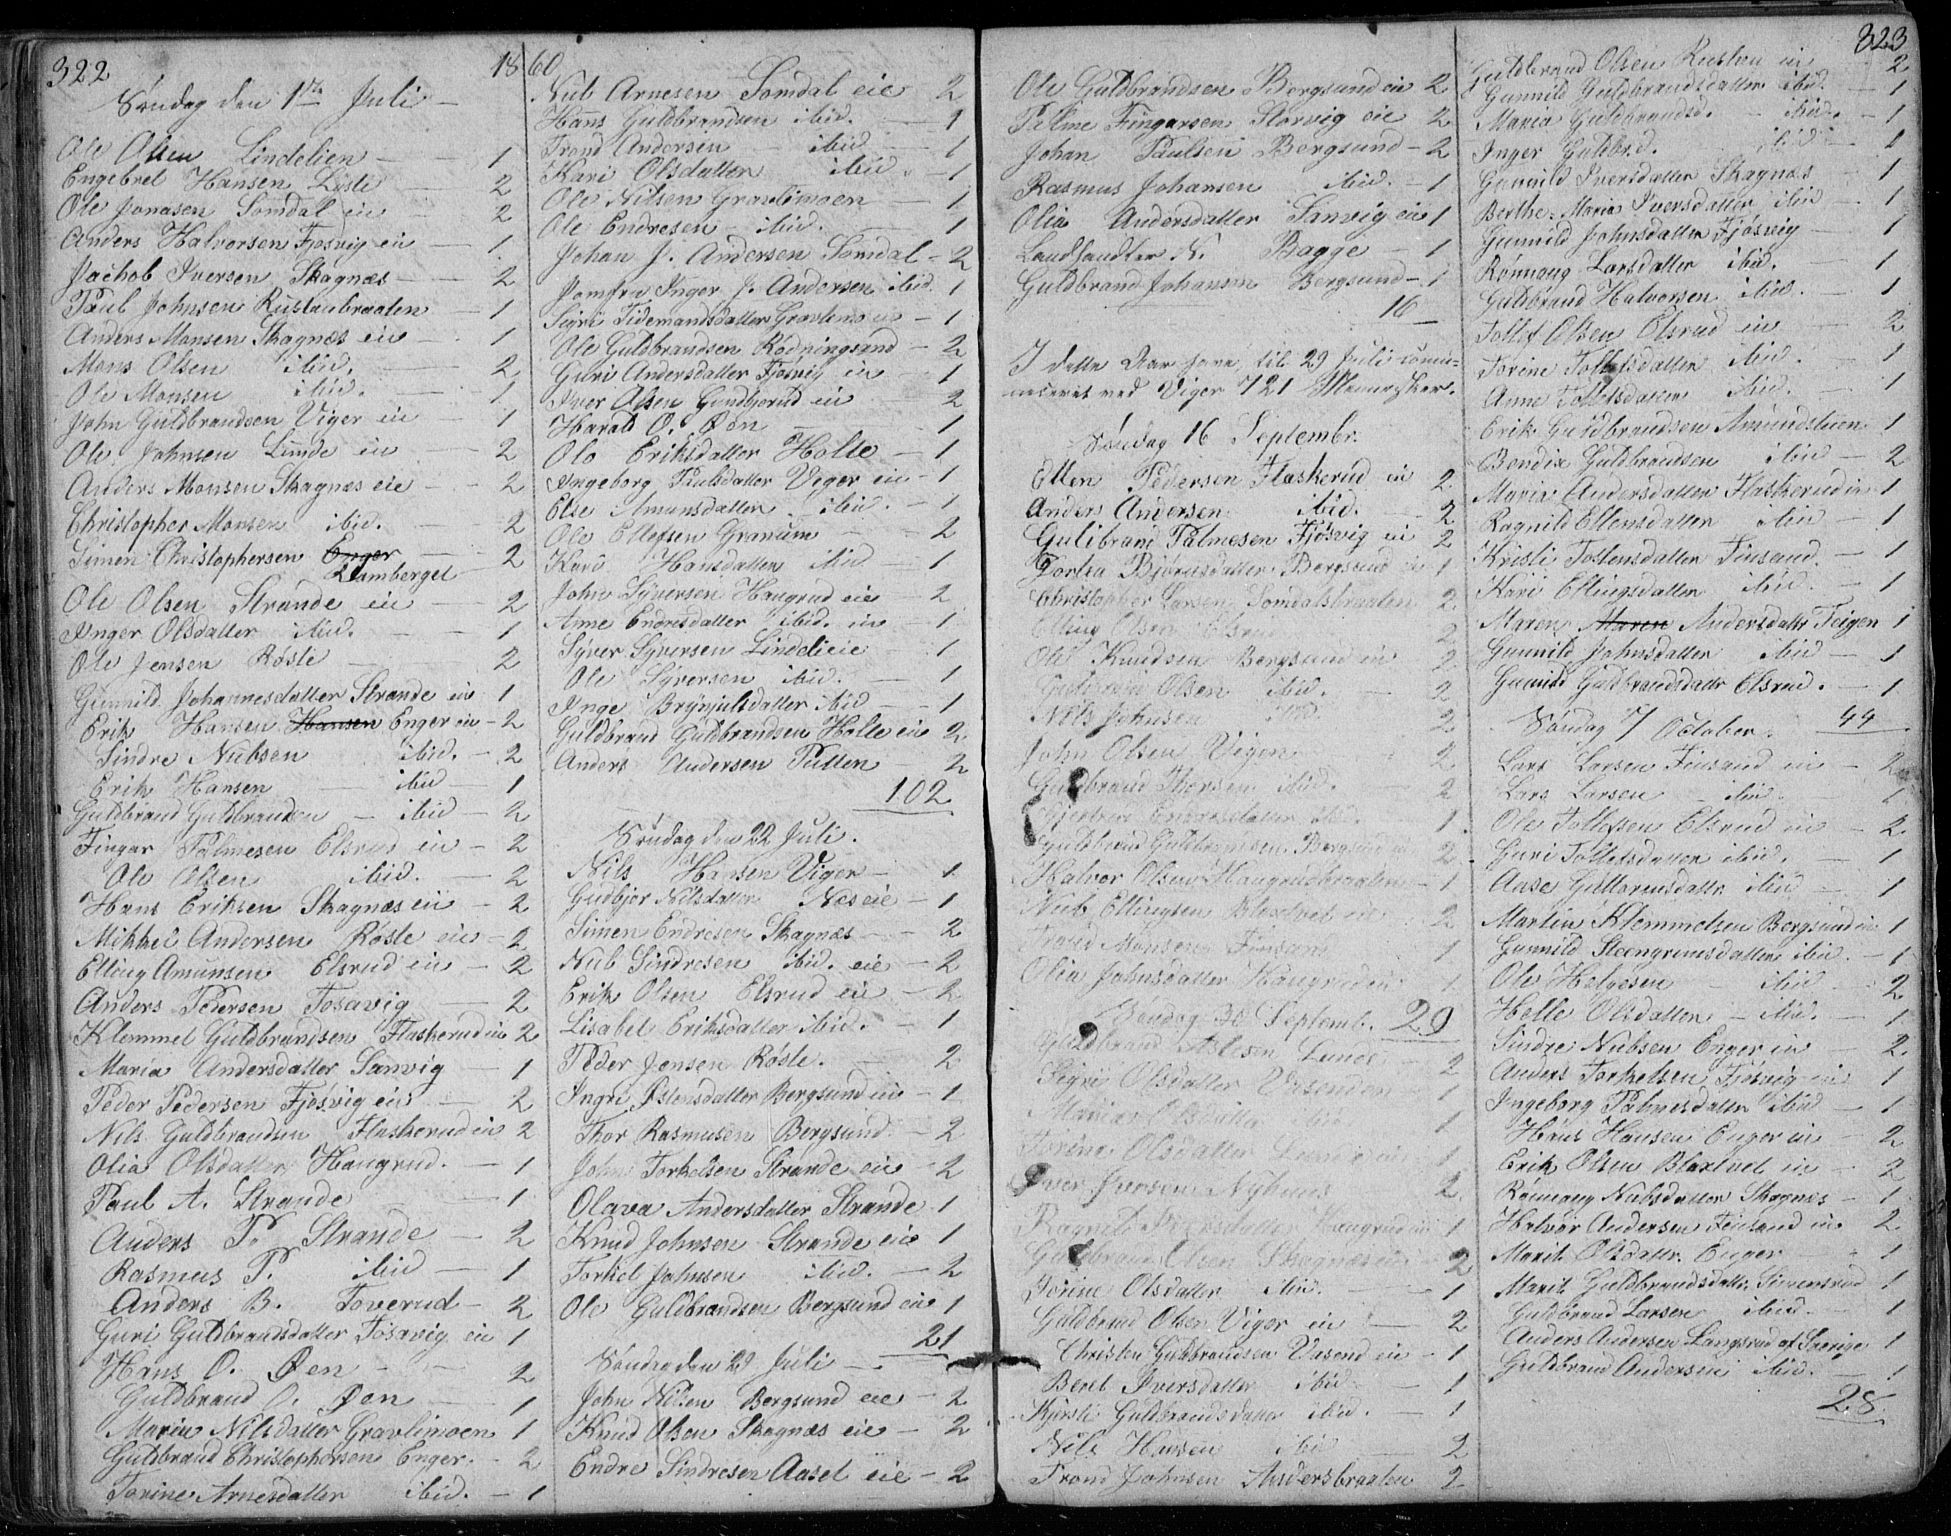 322
1860
Søndag den 1ste Juli
Ole Olsen Lindelien - 1
Engebret Hansen Liste - 2
Ole Jonasen Somdal eie - 2
Anders Halvorsen Fjosvig eie - 1
Jachob Iversen Skagnæs - 2
Paul Johnsen Rustanbraaten - 1
Anders Monsen Skagnæs eie - 1
Mons Olsen ibid. - 2
Ole Monsen ibid. - 1
John Guldbrandsen Viger eie - 1
Ole Johnsen Lunde eie - 2
Anders Monsen Skagnæs eie - 2
Christopher Monsen ibid. - 2
Simen Christophersen Enger - 2
Damberget
Ole Olsen Strande eie - 2
Inger Olsdatter ibid. - 1
Ole Jensen Røsle - 2
Gunnild Johannesdatter Strande eie 1
Erik Hansen Hansen Enger eie - 2
Sindre Nubsen ibid. - 2
Erik Hansen ibid - 1
Guldbrand Guldbrandsen - ibid - 2
Fingar Palmesen Elsrud eie - 2
Ole Olsen ibid. - 2
Hans Eriksen Skagnæs eie - 2
Mikkel Andersen Røsle eie - 2
Elling Amunsen Elsrud eie - 2
Anders Pedersen Fosavig - 2
Klemmet Guldbrandsen Flaskerud eie 2
Maria Andersdatter Sanvig - 1
Peder Pedersen Fjøsvig eie - 2
Nils Guldbrandsen Flaskerud eie 2
Olia Olsdatter Haugrud. - 1
Paul A. Strande - 1
Anders P. Strande - 2
Rasmus P. ibid - 1
Anders B. Foverud - 2
Guri Guldbrandsdatter Fosavig eie 1
Hans O. Øen - 2
Guldbrand O. Øen - 1
Marie Nilsdatter Gravlimoen 1
Guldbrand Christophersen Enger. - 2
Torine Arnesdatter ibid. - 1
Nub Arnesen Somdal eie 2
Hans Guldbrandsen ibid. - 1
Trond Andersen - ibid - 1
Kari Olsdatter ibid - 1
Ole Nilsen Gravlimoen - 1
Ole Endresen - ibid. 1
Johan J. Andersen Somdal - 2
Jomfru Inger J. Andersen ibid. 1
Sigri Tidemandsdatter Gravlimoen - 1
Ole Guldbrandsen Rodningsand - 2
Guri Andersdatter Fjosvig eie - 1
Iver Olsen Gundjerud eie 2
Harald O. Øen - 1
Olo Eriksdatter Holte - 1
Ingeborg Paulsdatter Veger eie - 1
Else Amunsdatter ibid. - 1
Ole Ellefsen Granum - 2
Kari Hansdatter ibid - 1
John Syversen Haugrud eie - 2
Anne Endresdatter ibid. eie - 1
Syver Syversen Lindelieie - 1
Ole Syversen ibid. - 1
Inge Brynjulsdatter ibid - 1
Guldbrand Guldbrandsen Holte eie 2
Anders Andersen Putten - 2
102
Søndag den 22 Juli.
Nils Hansen Viger - 1
Gudbjor Nilsdatter Nes eie - 1
Simen Endresen Skagnæs - 2
Nub Sindresen ibid. eie - 2
Erik Olsen Elsrud eie - 2
Lisabet Eriksdatter ibid. - 1
Peder Jensen Røsle. - 2
Ingri Østensdatter Bergsund eie - 1
Thor Rasmusen Bergsund. - 2
John Torkelsen Strande eie - 2
Olava Andersdatter Strande 1
Knud Johnsen Strande eie 1
Torkel Johnsen ibid. - 2
Ole Guldbrandsen Bergsund eie 1
21
Søndag den 29 Juli -
John Nilsen Bergsund eie - 2
Knud Olsen Skagnæs eie - 2
Endre Sindresen Aaset eie - 2
323
Ole Guldbrandsen Bergsund eie 2
Palme Fingarsen Storvig eie 2
Johan Paulsen Bergsund - 2
Rasmus Johansen ibid. - 1
Olia Andersdatter Sanvig eie 1
Landhandler N. Bagge - 1
Guldbrand Johansen Bergsund - 1
16
I dette Aar have, til 29 Juli commu-
niceret ved Viger 721 Mennesker.
Søndag 16 Septembr.
Ellen Pedersen Flaskerud eie 2
Anders Andersen ibid. - 2
Gulibrand Palmesen Fjøsvig eie 2
Torbia Bjørnsdatter Bergsund eie 1
Christopher Larsen Somdalsbraaten 2
Elling Olsen Elsrud 2
Ole Knudsen Bergsund eie 2
Guldbrand Olsen ibid. - 2
Nils Johnsen ibid 2
John Olsen Vigen - 2
Guldbrand Thorsen ibid. 2
Endresdatter ibid. 1
Guldbrand Guldbrandsen Bergsund eie 2
Halvor Olsen Haugrudbraaten - 1
Nub Ellingsen Blaxtvet eie 2
Trond Monsen Finsand 1
Olia Johnsdatter Haugrud eie 1
Søndag 30 Septemb. 29
Guldbrand Aslesen Lunde 2
Sigri Olsdatter Vasenden - 1
Maria Olsdatter ibid 1
Torine Olsdatter Lunde eie 1
Iver Iversen Nyhuus 2
Ragnild Iversdatter Haugrud eie 1
Guldbrand Olsen Skagnæs eie 2
Torine Olsdatter ibid. - 1
Guldbrand Olsen Viger eie - 2
Christen Guldbrandsen Vasend eie - 1
Beret Iversdatter ibid - 1
Kjersti Guldbrandsdatter ibid. - 1
Nils Hansen ibid 2
Trond Johnsen Andersbraaten 2
Guldbrand Olsen Rusten eie 2
Gunnild Guldbrandsdatter ibid. - 1
Maria Guldbrandsd. - ibid. - 1
Inger Guldbr.d. ibid - 1
Gunnild Iversdatter Skagnæs - 1
Berthe Maria Iversdatter ibid - 1
Gunnild Johnsdatter Fjøsvig - 1
Rønnaug Larsdatter ibid. - 1
Guldbrand Halvorsen ibid. - 1
Tollef Olsen Elsrud eie - 2
Torine Tollefsdatter ibid. - 1
Anne Tollefsdatter ibid. - 1
Erik Guldbrandsen Amundstuen 1
Bendix Guldbrandsen ibid - 2
Maria Andersdatter Flaskerud eie 1
Ragnild Ellensdatter ibid - 1
Kristi Tostensdatter Finsand. - 1
Kari Ellingsdatter ibid. - 1
Maren Maren Andersdatr Feigen 1
Gunnild Johnsdatter ibid - 1
Gunnild Guldbrandsdatr Elsrud. - 1
Søndag 7/ October. 44
Lars Larsen Finsand eie - 2
Lars Larsen - ibid. -
Ole Tollefsen Elsrud eie - 2
Guri Tollefsdatter ibid. - 1
Aase Guttormsdatr. ibid - 1
Martin Klemmetsen Bergsund eie 1
Gunnild Steengrimsdatter ibid. - 1
Ole Helgesen - ibid - 2
Helle Olsdatter - ibid. - 1
Sindre Nubsen Enger eie - 2
Anders Torkelsen Fjøsvig eie 1
Ingeborg Palmesdatter ibid - 1
Hans Hansen Enger eie - 2
Erik Olsen Blaxtvet eie - 2
Rønnaug Nubsdatter Skagnæs - 1
Halvor Andersen Finsand eie 2
Marit Olsdatr. Enger - 1
Marit Guldbrandsdatr. Simensrud 1
Guldbrand Larsen ibid. - 1
Anders Andersen Langsrud af Sverige 1
Guldbrand Andersen ibid. - 1
28